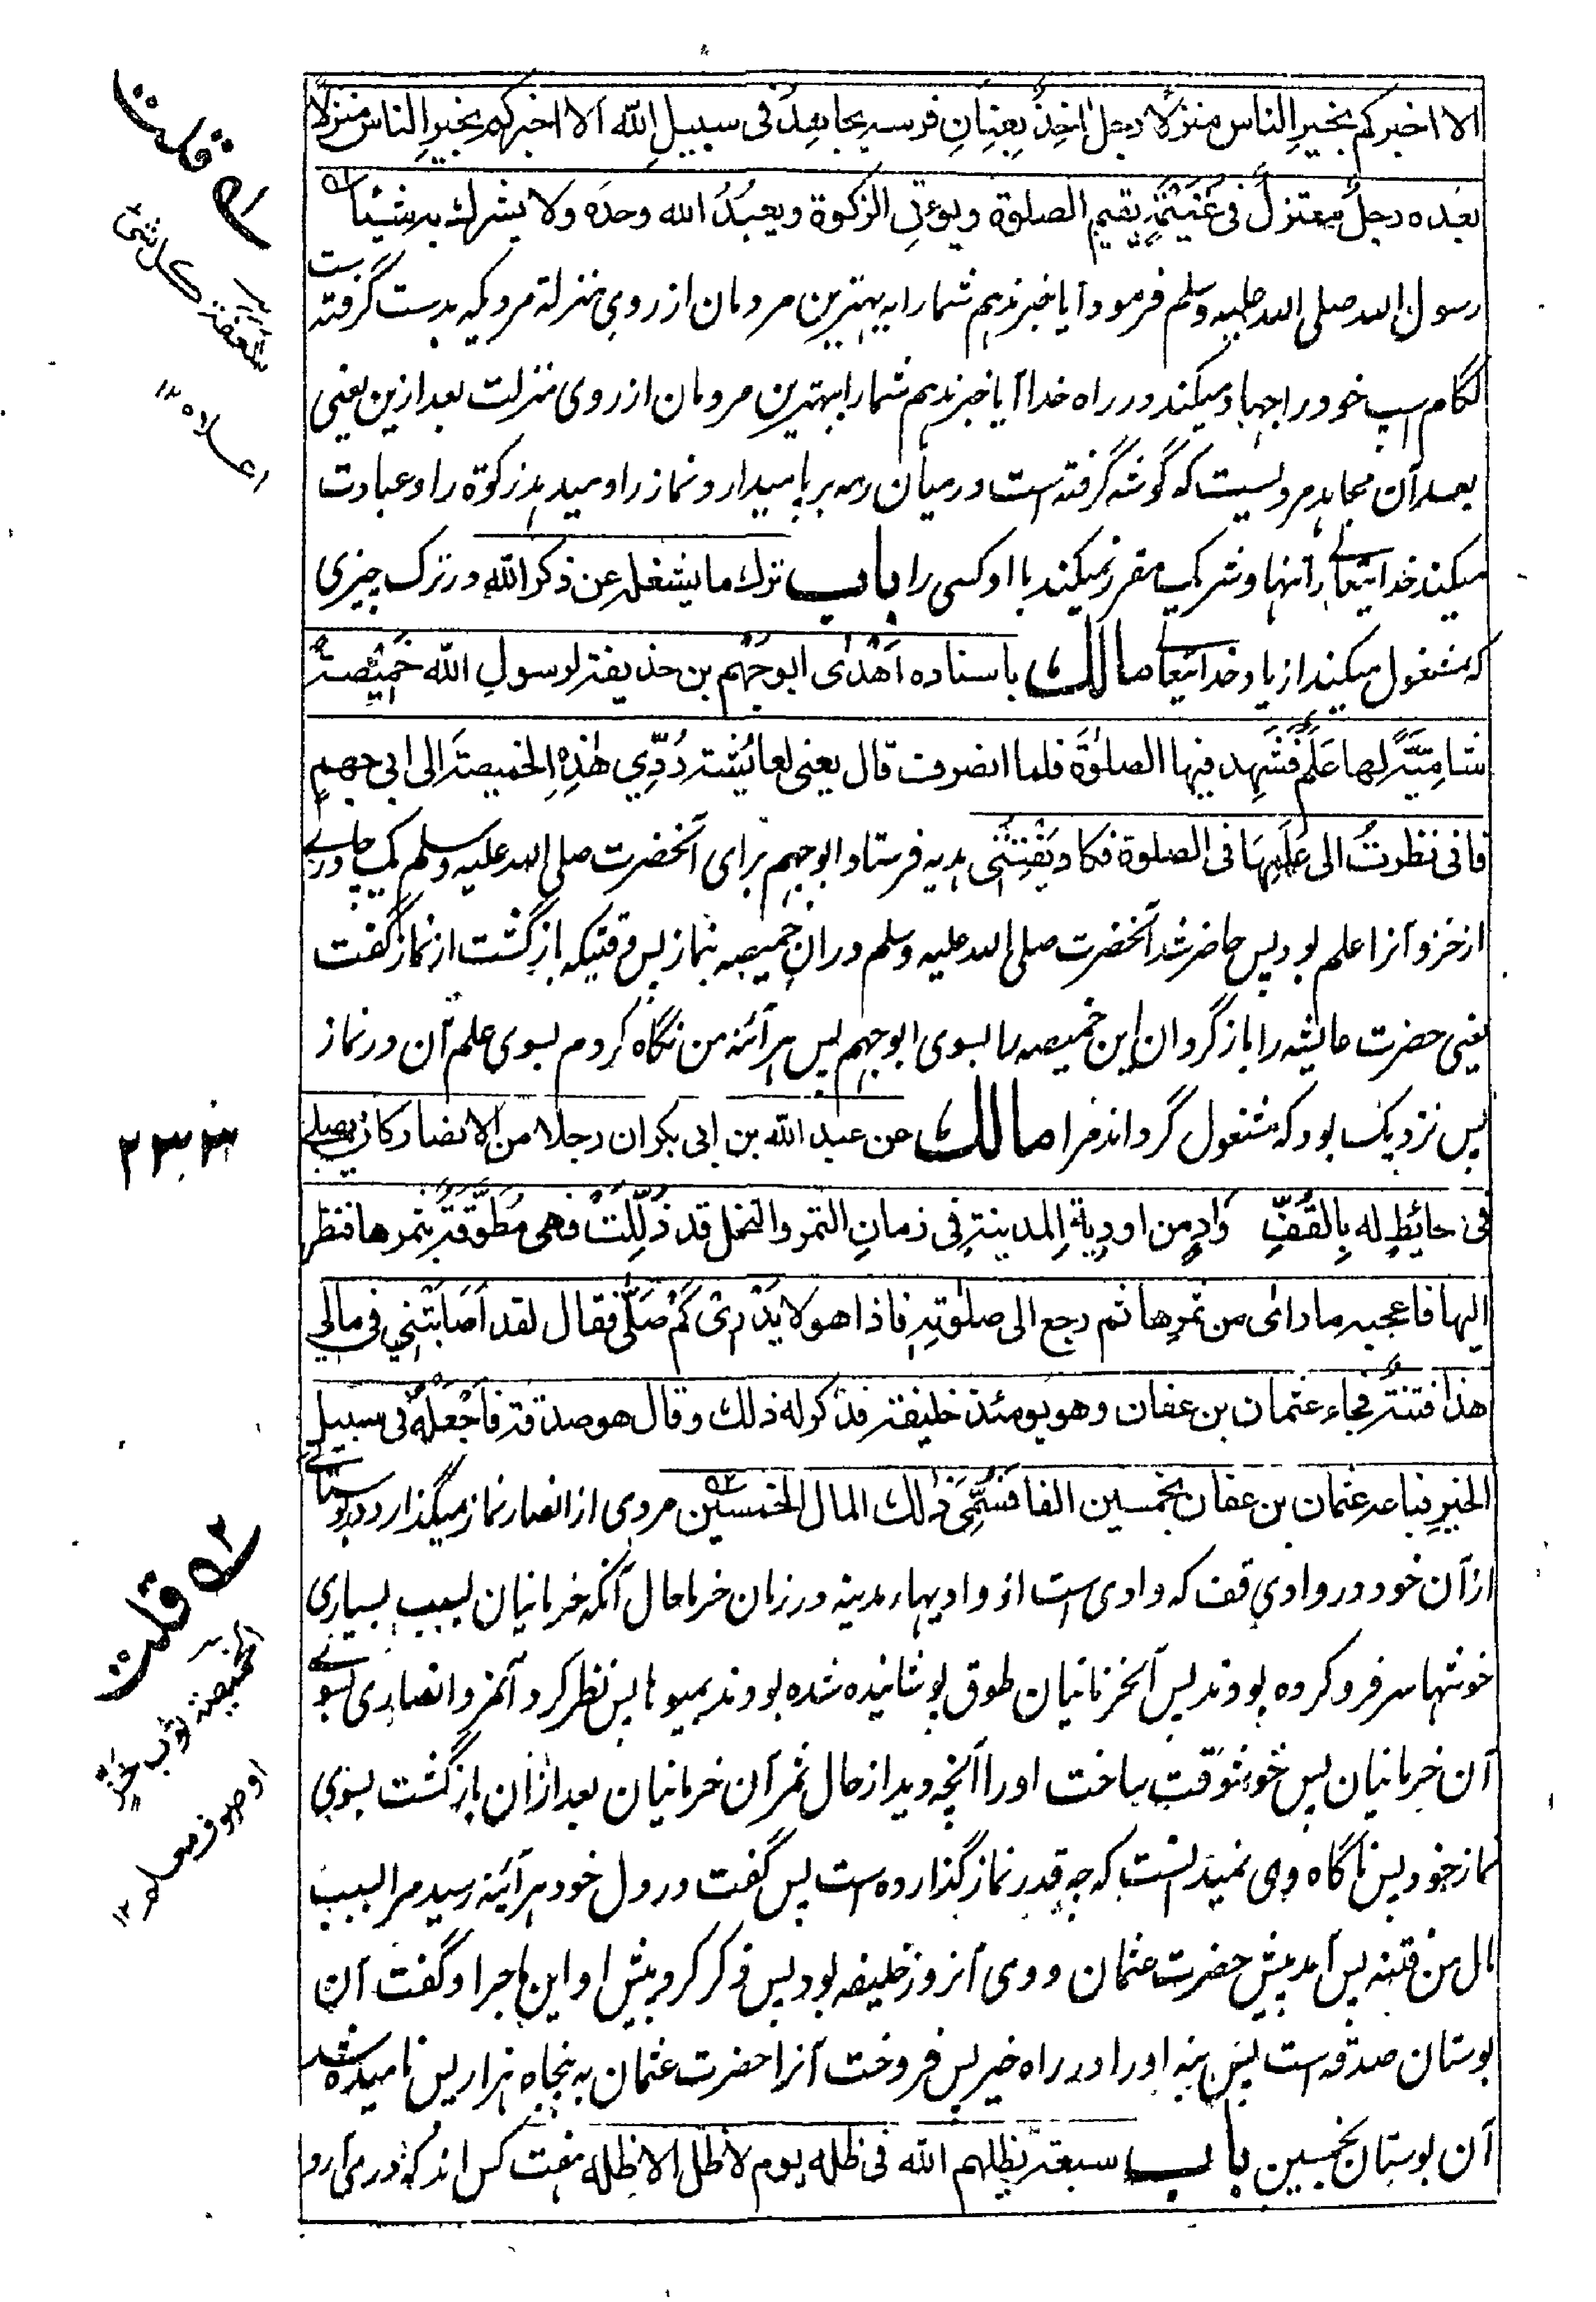 الا اخبركم بخيرِ الناس منزلًا رجلٌ اٰخِذٌ بِعِنانِ فرسه يجاهِدُ فى سبيلِ الله الا اخبركم بخيرِ الناس منزلًا
بعده رجلٌ معتزلٌ فى غُنَيْمَةٍ يقيم الصلوة ويؤتِى الزكوة ويعبُدُ الله وحدَه ولا يشرك به شيئا ۵۱
رسول الله صلى الله عليه وسلم فرمود آيا خبر ندهم شمارا به بهترين مردمان از روى منزلة مرديكه بدست گرفته ست
لگام اسپ خود را جهاد ميكند در راه خدا آيا خبر ندهم شمارا بهترين مردمان از روى منزلت بعد ازين يعنى
بعد آن مجاهد مرديست كه گوشه گرفته است درميان رمه برپا ميدارد نماز را و ميدهد زكوة را و عبادت
ميكند خدايتعالے را تنها و شريك مقرر نميكند با او كسى را باب ترك ما يشغله عن ذكر الله در ترك چيزى
كه مشغول ميكند از ياد خدايتعالے مالك باسناده اَهْدٰى ابو جَهْم بن حذيفة لرسولِ الله خَمِيْصةً
شامِيَّةً لها عَلَمٌ فشَهِد فيها الصلوٰةَ فلما انصرف قال يعنى لعائشة رُدِّي هٰذِهِ الخميصةَ الى ابى جهمٍ
فانى نظرتُ الى عَلَمِهَا فى الصلوة فكاد يَفْتِنُنِى هديه فرستاد ابوجهم براى آنحضرت صلى الله عليه وسلم يك چادرے
از خز و آنرا علم بود پس حاضر شد آنحضرت صلى الله عليه وسلم در ان خميصه بنماز پس وقتيكه بازگشت از نماز گفت
يعنى حضرت عايشه را بازگردان اين خميصه را بسوى ابوجهم پس هرآئنه من نگاه كردم بسوى علم آن در نماز
پس نزديك بود كه مشغول گرداند مرا مالك عن عبد الله بن ابى بكر ان رجلا من الانصار كان يصلے
فى حائِطٍ له بِالقُفِّ وادٍ من اودِيةِ المدينةِ فى زمانِ الثمر والنخل قد ذُلِّلَتْ فهى مُطَوَّقَةٌ بثمرها فنظر
اليها فاعجبه ما رأى من ثمرِها ثم رجع الى صلوٰتِهِ فاذا هو لا يَدْرِىْ كَمْ صَلّٰى فقال لقد اَصَابَتْنِي فى مالي
هذا فتنةٌ فجاء عثمان بن عفان وهو يومئذ خليفة فذكر له ذلك وقال هو صدقة فَاجْعَلْهُ فى سبيلِ
الخيرِ فباعه عثمان بن عفان بخمسين الفا فسُمِّىَ ذٰلك المال الخمسين ۵۲ مردى از انصار نماز ميگذارد در بوستانے
از آن خود در وادى قف كه وادى است از واديهاء مدينه در زمان خرما حال آنكه خرمانيان بسبب بسيارى
خوشها سر فرو كرده بودند پس آنخرمانيان طوق پوشانيده شده بودند بميوها پس نظر كرد آنمرد انصارى بسوے
آن خرمانيان پس خوشوقت ساخت او را آنچه ديد از حال ثمر آن خرمانيان بعد ازان بازگشت بسوى
نماز خود پس ناگاه وى نميدانست كه چه قدر نماز گذارده است پس گفت در دل خود هرآئينه رسيد مرا بسبب
مال من فتنه پس آمد پيش حضرت عثمان و وى آنروز خليفه بود پس ذكر كرد پيش او اين ماجرا و گفت آن
بوستان صدقه است پس بنه او را در راه خير پس فروخت آنرا حضرت عثمان به پنجاه هزار پس ناميده شد
آن بوستان بخمسين باب سبعة يظلهم الله فى ظله يوم لا ظل الا ظله هفت كس اند كه در مى آرد
۵۱ قلت
شعفة كل شئ
اعلاه ۱۲
۲۳۳
۵۲ قلت
الخميصة ثوب خز
او صوف معلم ۱۲